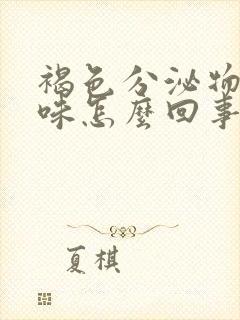 褐色分泌物
味怎麼回事
夏棋